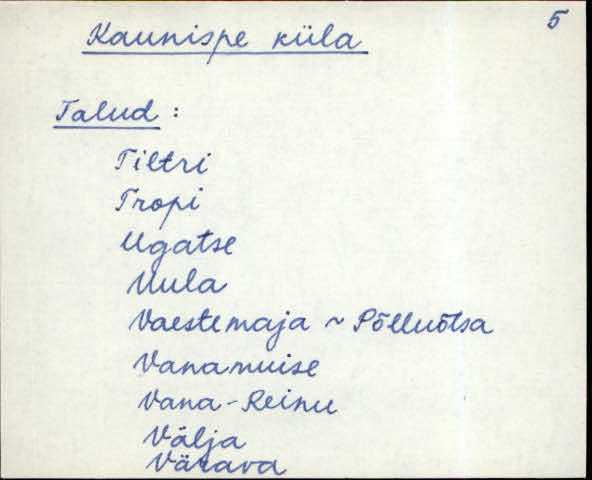 5
Kaunispe küla
Talud :
Tiltri
Tropi
Ugatse
Uula
Vaestemaja ~ Põlluõtsa
Vanamuise
Vana-Reinu
Välja
Värava